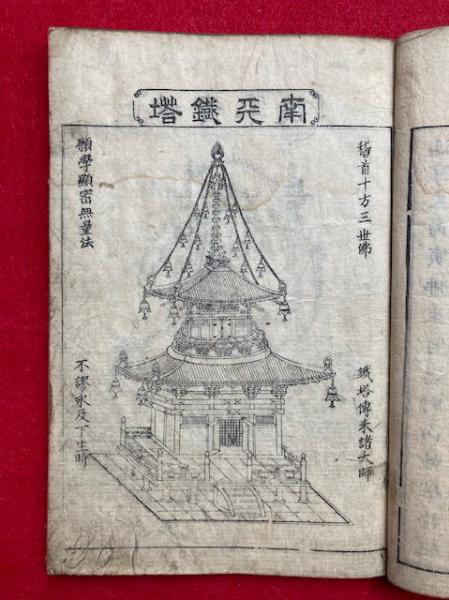 南天鐵塔
稽首十方三世佛
鐵塔傳来諸大師
願學顯密無量法
不謬永及下生時